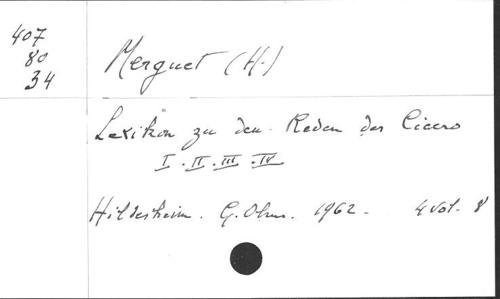 407
80
34
Merguet (H.)
Lexikon zu den Reden des Cicero
I. II. III. IV
Hildesheim. G. Olms. 1962. 4 vol. 8